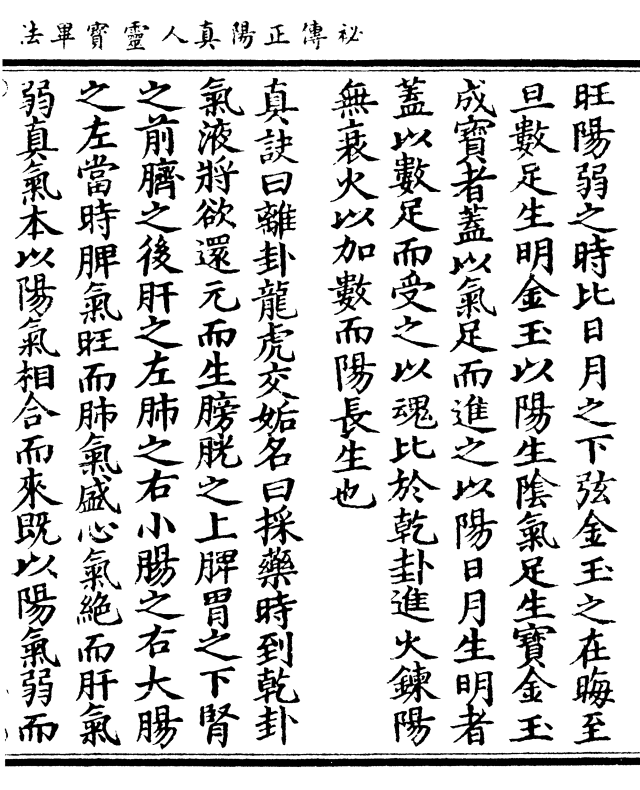 祕傳正陽真人靈寶畢法
旺陽弱之時比日月之下弦金玉之在晦至
旦數足生明金玉以陽生陰氣足生寶金玉
成寶者蓋以氣足而進之以陽日月生明者
蓋以數足而受之以魂比於乾卦進火鍊陽
無衰火以加數而陽長生也
真訣曰離卦龍虎交姤名曰採藥時到乾卦
氣液將欲還元而生膀胱之上脾胃之下腎
之前臍之後肝之左肺之右小腸之右大腸
之左當時脾氣旺而肺氣盛心氣絕而肝氣
弱真氣本以陽氣相合而來既以陽氣弱而